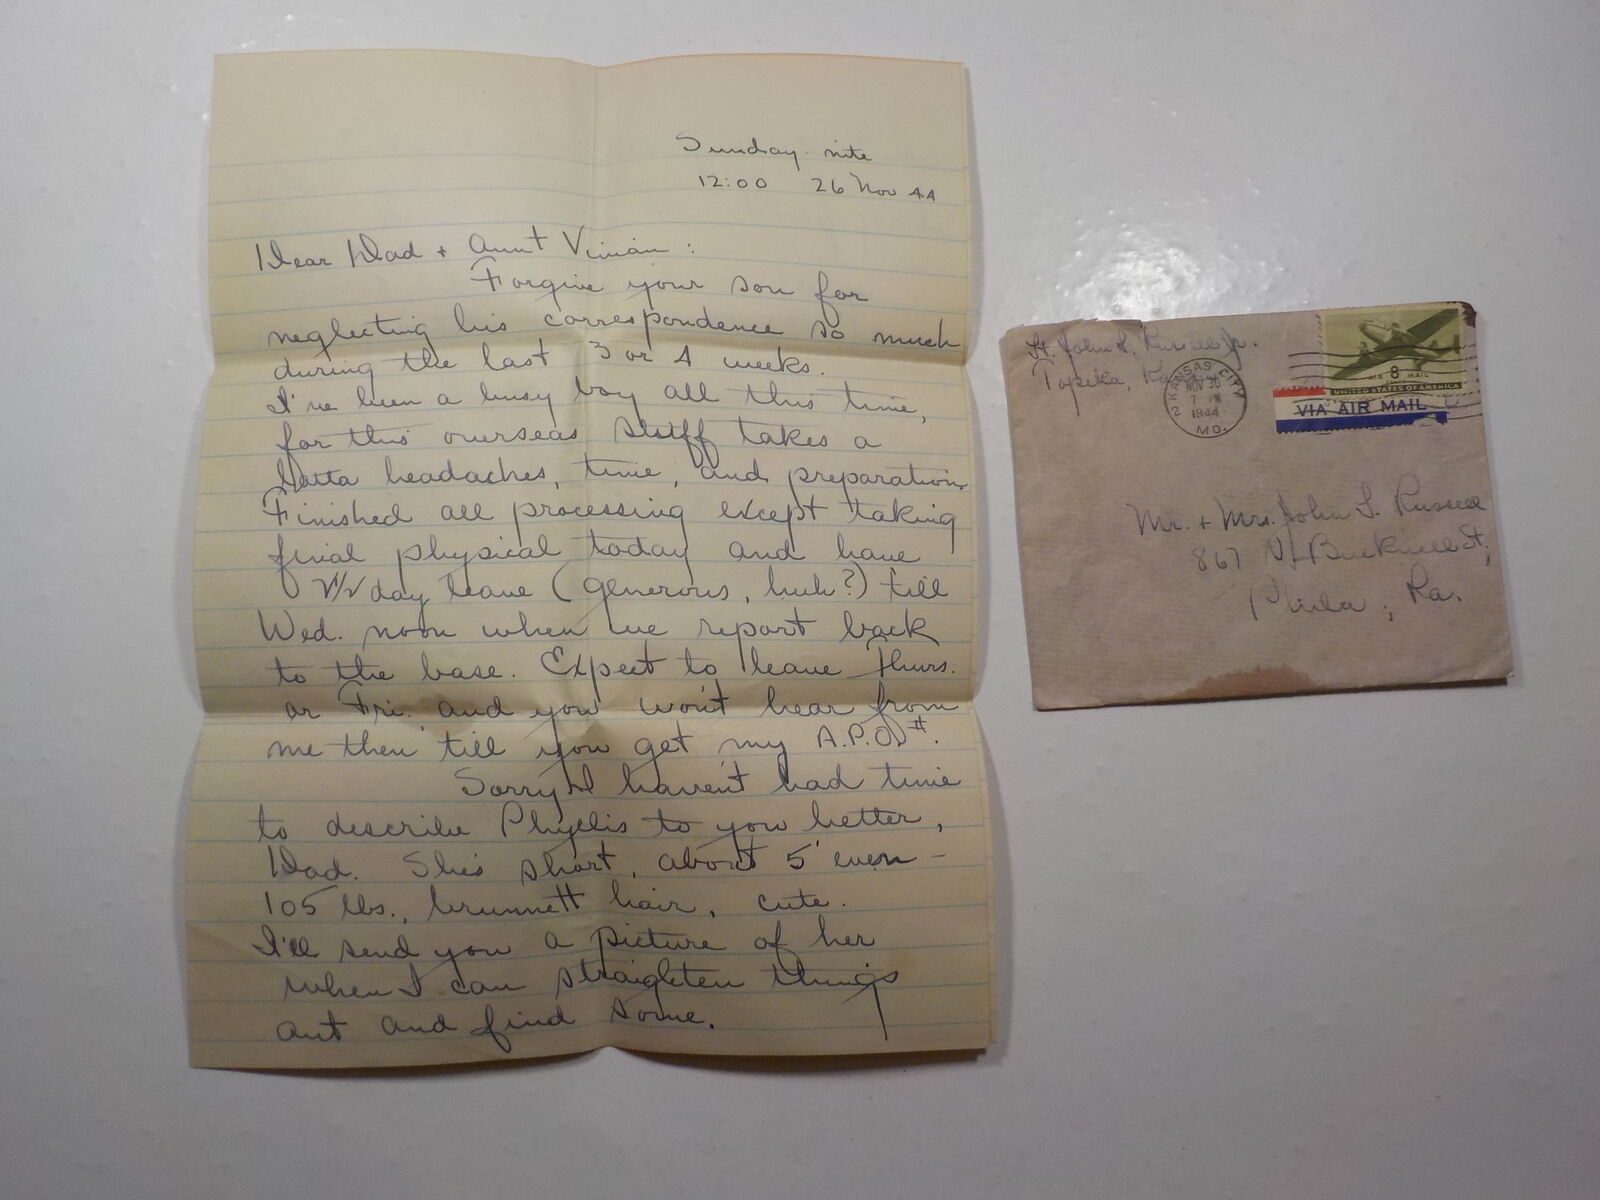 Sunday nite
12:00 26 Nov 44
Dear Dad + Aunt Vivian:
Forgive your son for
neglecting his correspondence so much
during the last 3 or 4 weeks.
I've been a busy boy all this time,
for this overseas stuff takes a
lotta headaches, time, and preparation.
Finished all processing except taking
final physical today and have
2 1/2 day leave (generous, huh?) till
Wed. noon when we report back
to the base. Expect to leave Thurs.
or Fri. and you won't hear from
me then till you get my A.P.O.#.
Sorry I haven't had time
to describe Phyllis to you better,
Dad. She's short, about 5' even -
105 lbs., brunnett hair, cute.
I'll send you a picture of her
when I can straighten things
out and find some.
Lt. John S. Russell Jr.
Topeka,
KANSAS CITY
NOV 30
7 PM
1944
2 MO.
AIR 8 MAIL
UNITED STATES OF AMERICA
VIA AIR MAIL
Mr. + Mrs. John S. Russell
867 N. Bucknell St.,
Phila, Pa.